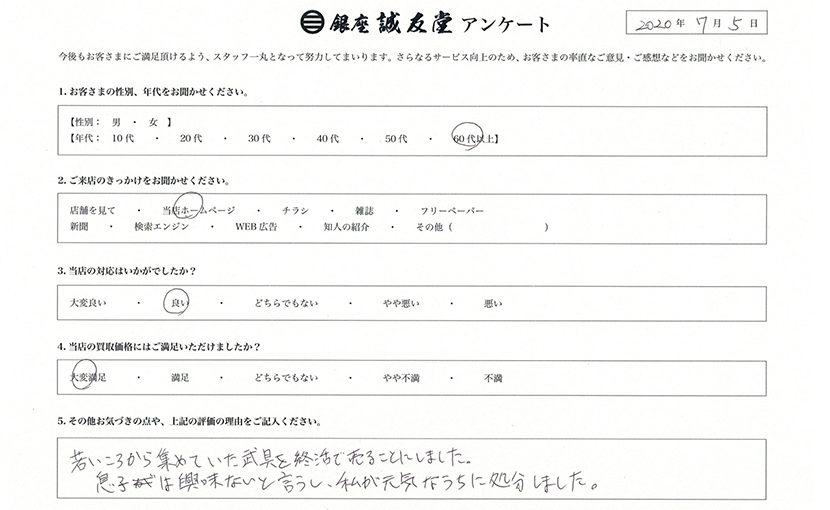 銀座 誠友堂 アンケート
2020年 7月 5日
今後もお客さまにご満足頂けるよう、スタッフ一丸となって努力してまいります。さらなるサービス向上のため、お客さまの率直なご意見・ご感想などをお聞かせください。
1. お客さまの性別、年代をお聞かせください。
【性別： 男 ・ 女 】
【年代： 10代 ・ 20代 ・ 30代 ・ 40代 ・ 50代 ・ 60代以上】
2. ご来店のきっかけをお聞かせください。
店舗を見て ・ 当店ホームページ ・ チラシ ・ 雑誌 ・ フリーペーパー
新聞 ・ 検索エンジン ・ WEB広告 ・ 知人の紹介 ・ その他（ ）
3. 当店の対応はいかがでしたか？
大変良い ・ 良い ・ どちらでもない ・ やや悪い ・ 悪い
4. 当店の買取価格にはご満足いただけましたか？
大変満足 ・ 満足 ・ どちらでもない ・ やや不満 ・ 不満
5. その他お気づきの点や、上記の評価の理由をご記入ください。
若いころから集めていた武具を終活で売ることにしました。
息子は興味ないと言うし、私が元気なうちに処分しました。